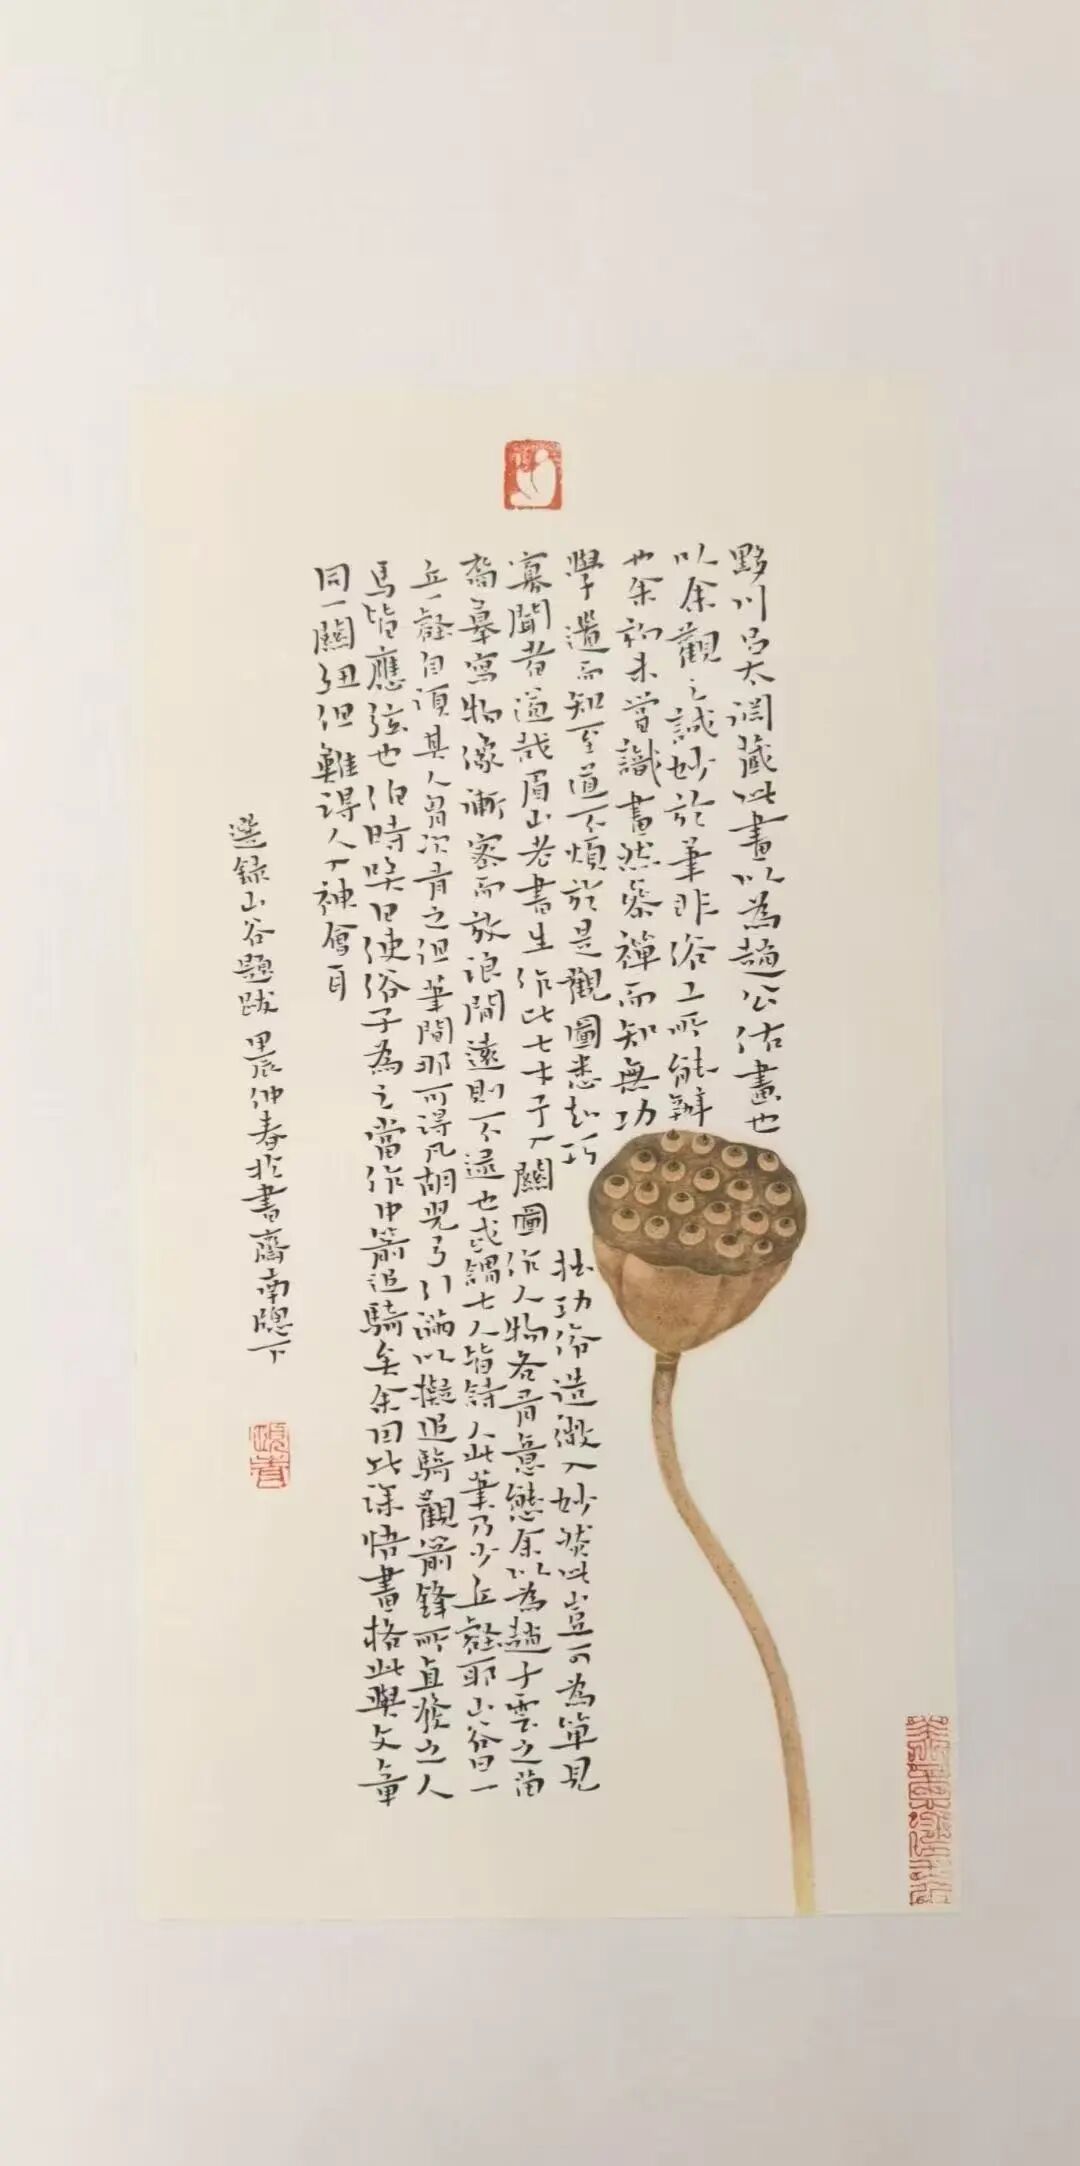 黟川吕太渊藏此畫以為趙公佑畫也
以余觀之誠妙於筆非俗工所能辦
也余初未嘗識畫然參禪而知無功
學道而知至道不煩於是觀圖悉知巧拙功俗造微入妙然此豈可為單見
寡聞者道哉眉山老書生作此七才子入關圖作人物各有意態余以為趙子雲之苗
裔摹寫物像漸密而放浪間遠則不逮也或謂七人皆詩人此筆乃少丘壑耶山谷曰一
丘一壑自須其人胷次有之但筆間那可得凡胡兒弓引滿以擬追騎觀箭鋒所直發之人
馬皆應弦也伯時笑曰使俗子為之當作中箭追騎矣余因此深悟畫格此與文章
同一關紐但難得人入神會耳
選録山谷題跋 甲辰仲春於書齋南牕下